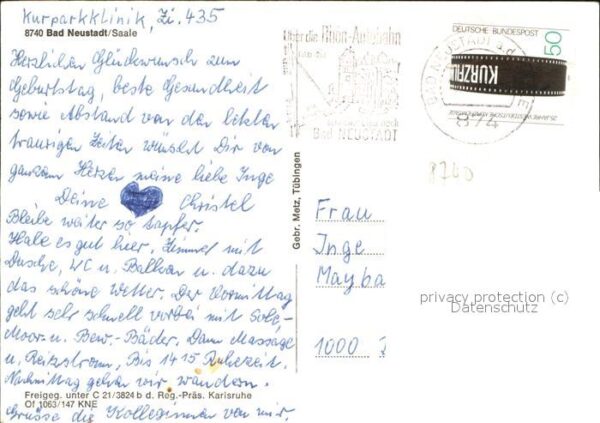 Kurparkklinik, Zi. 435
8740 Bad Neustadt/Saale
Herzlichen Glückwunsch zum
Geburtstag, beste Gesundheit
sowie Abstand von der letzten
traurigen Zeiten wünscht Dir von
ganzem Herzen meine liebe Inge
Deine Christel
Bleibe weiter so tapfer.
Habe es gut hier, Zimmer mit
Dusche, WC u. Balkon u. dazu
das schöne Wetter. Der Vormittag
geht sehr schnell vorbei mit Sole,-
Moor- u. Bew.-Bäder. Dann Massage
u. Reizstrom, Bis 14 15 Ruhezeit.
Nachmittag gehen wir wandern.
Freigeg. unter C 21/3824 b d. Reg.-Präs. Karlsruhe
Of 1063/147 KNE
Grüsse die Kolleginnen von mir.
Gebr. Metz, Tübingen
Über die Rhön-Autobahn
nach
Bad NEUSTADT
BAD NEUSTADT a.d.
874
DEUTSCHE BUNDESPOST
50
KURZFILM
8740
Frau
Inge
Mayba
1000
privacy protection (c)
Datenschutz